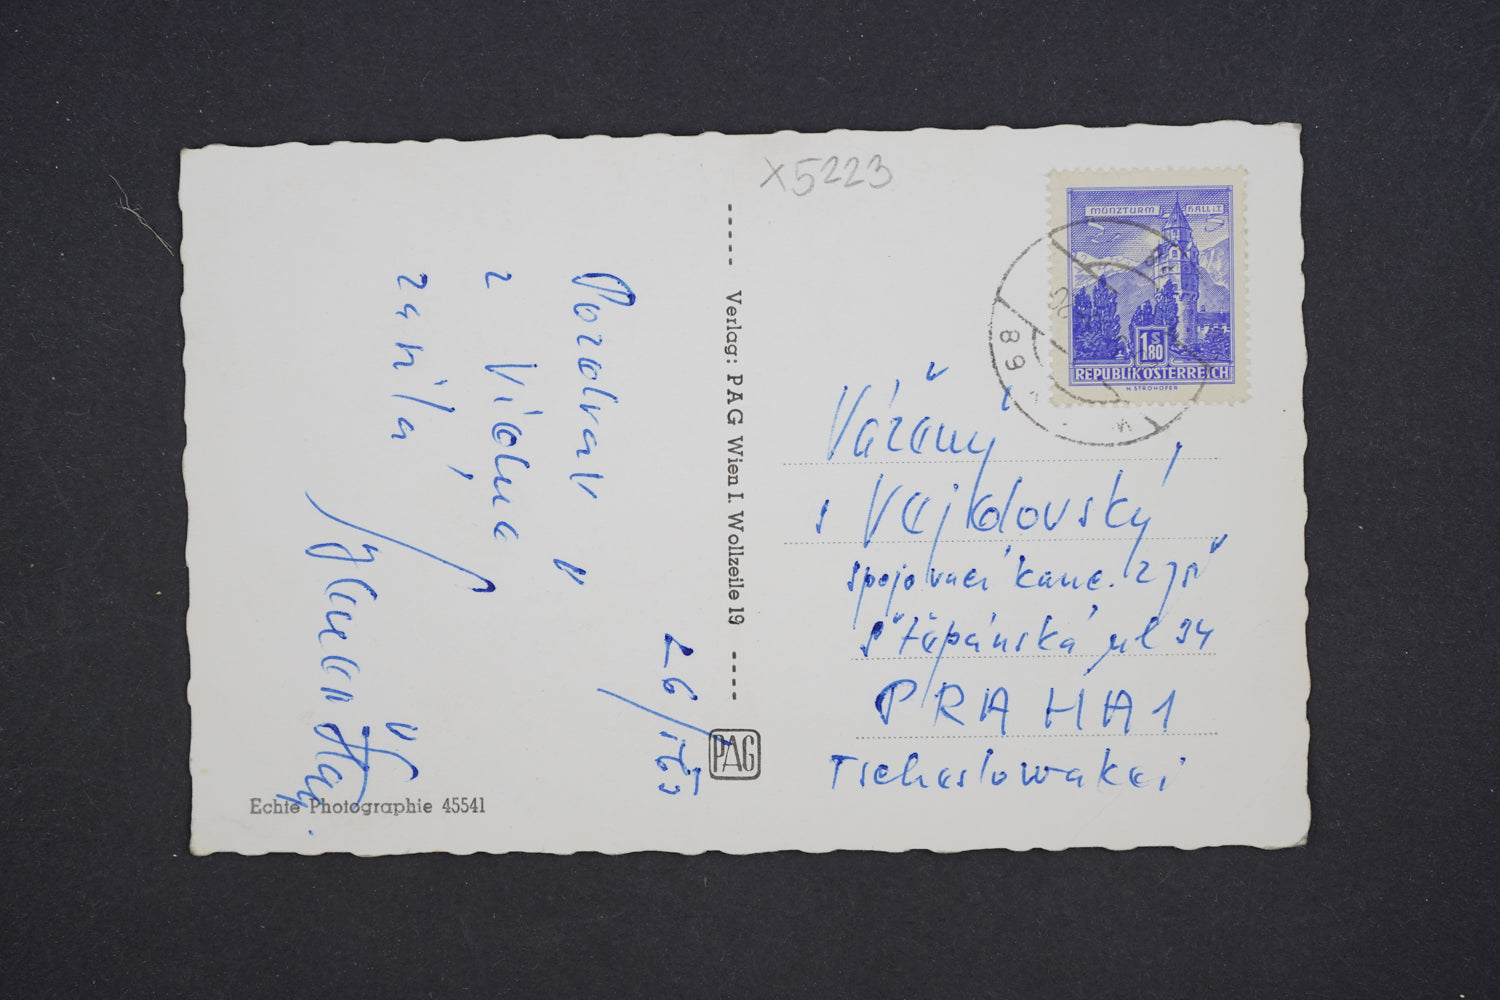 x5223
MÜNZTURM HALL i.T.
1 S 80
REPUBLIK ÖSTERREICH
H. STROHOFER
89
Verlag: PAG Wien I. Wollzeile 19
PAG
Echte Photographie 45541
Pozdrav
z Vídně
zasílá
Vážený
s Vajkdovský
spojovací kanc.
Štěpánská ul 34
PRAHA 1
Tschechoslowakei